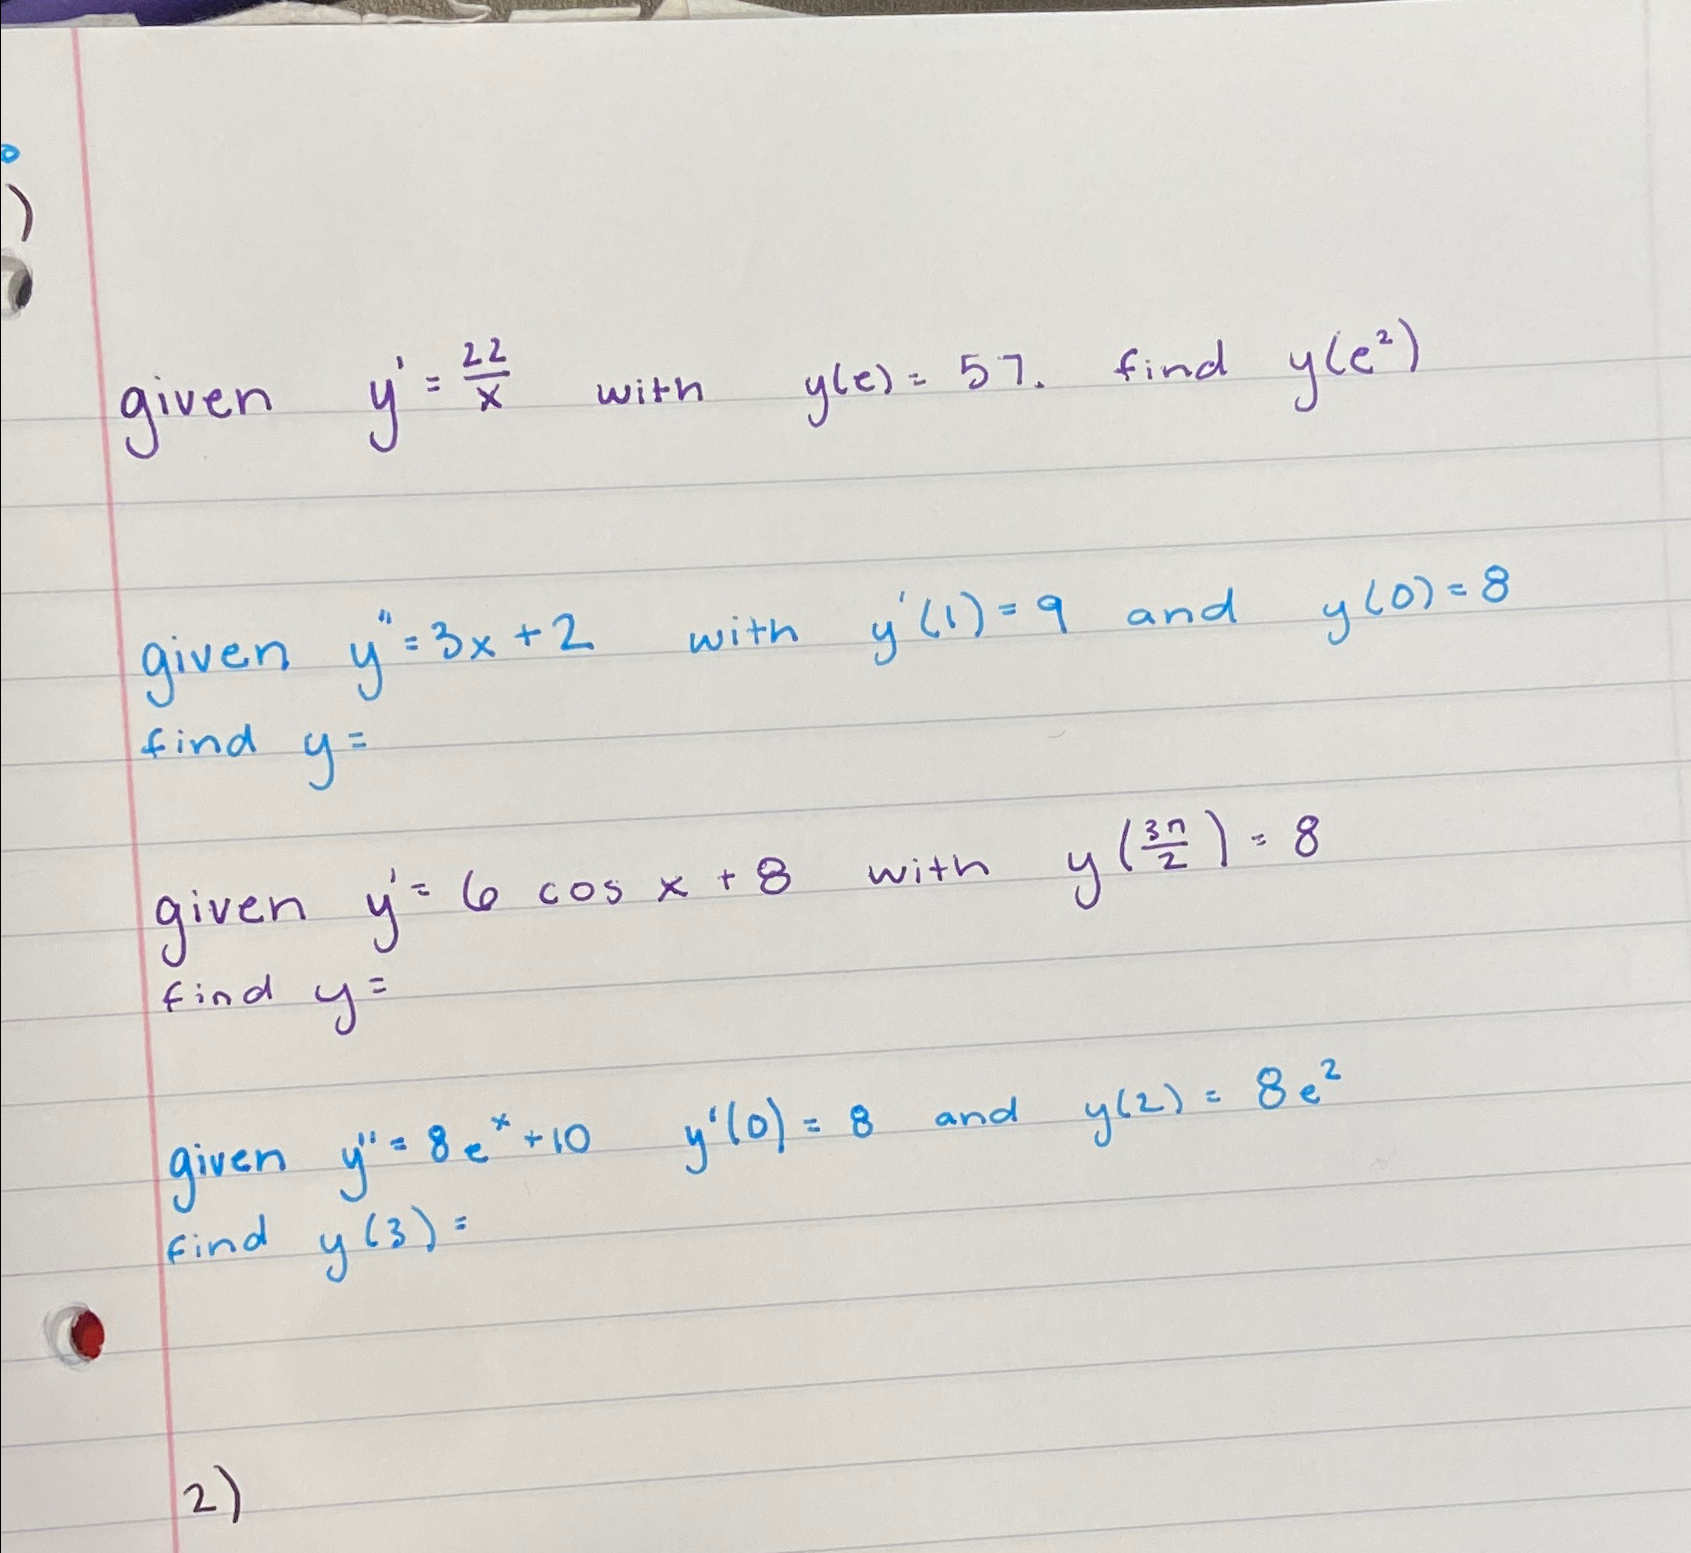 )
given y' = 22/x with y(e) = 57. find y(e²)
given y" = 3x + 2 with y'(1) = 9 and y(0) = 8
find y =
given y' = 6 cos x + 8 with y(3π/2) = 8
find y =
given y" = 8e^x + 10 y'(0) = 8 and y(2) = 8e²
find y(3) =
2)